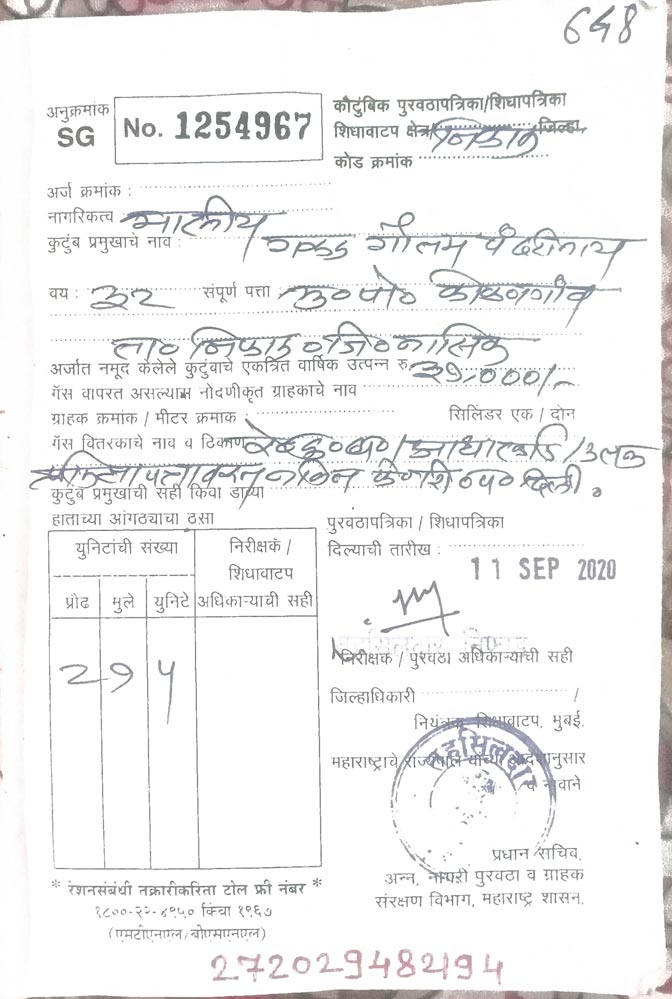 648
अनुक्रमांक
SG
No. 1254967
कौटुंबिक पुरवठापत्रिका/शिधापत्रिका
शिधावाटप क्षेत्र/ निफाड जिल्हा,
कोड क्रमांक
अर्ज क्रमांक :
नागरिकत्व भारतीय
कुटुंब प्रमुखाचे नाव : गौतम पंढरीनाथ
वय : 32 संपूर्ण पत्ता मु०पो०
ता० निफाड जि० नासिक
अर्जात नमूद केलेले कुटुंबाचे एकत्रित वार्षिक उत्पन्न रु. 39,000/-
गॅस वापरत असल्यास नोदणीकृत ग्राहकाचे नाव
ग्राहक क्रमांक / मीटर क्रमाक : सिलिंडर एक / दोन
गॅस वितरकाचे नाव व ठिकाण
दिली.
कुटुंब प्रमुखाची सही किंवा डाव्या
हाताच्या आंगठ्याचा ठसा
पुरवठापत्रिका / शिधापत्रिका
दिल्याची तारीख :
11 SEP 2020
युनिटांची संख्या
निरीक्षक / शिधावाटप अधिकाऱ्याची सही
प्रौढ मुले युनिटे
2 १ ५
निरीक्षक / पुरवठा अधिकाऱ्याची सही
जिल्हाधिकारी /
नियंत्रक शिधावाटप, मुबई.
महाराष्ट्राचे राज्यपाल यांच्या आदेशानुसार
व नावाने
तहसिलदार
प्रधान सचिव,
अन्न, नागरी पुरवठा व ग्राहक
संरक्षण विभाग, महाराष्ट्र शासन.
* रेशनसंबंधी तक्रारीकरिता टोल फ्री नंबर *
१८००-२२-४९५० किंवा १९६७
(एमटीएनएल/बीएसएनएल)
272029482194